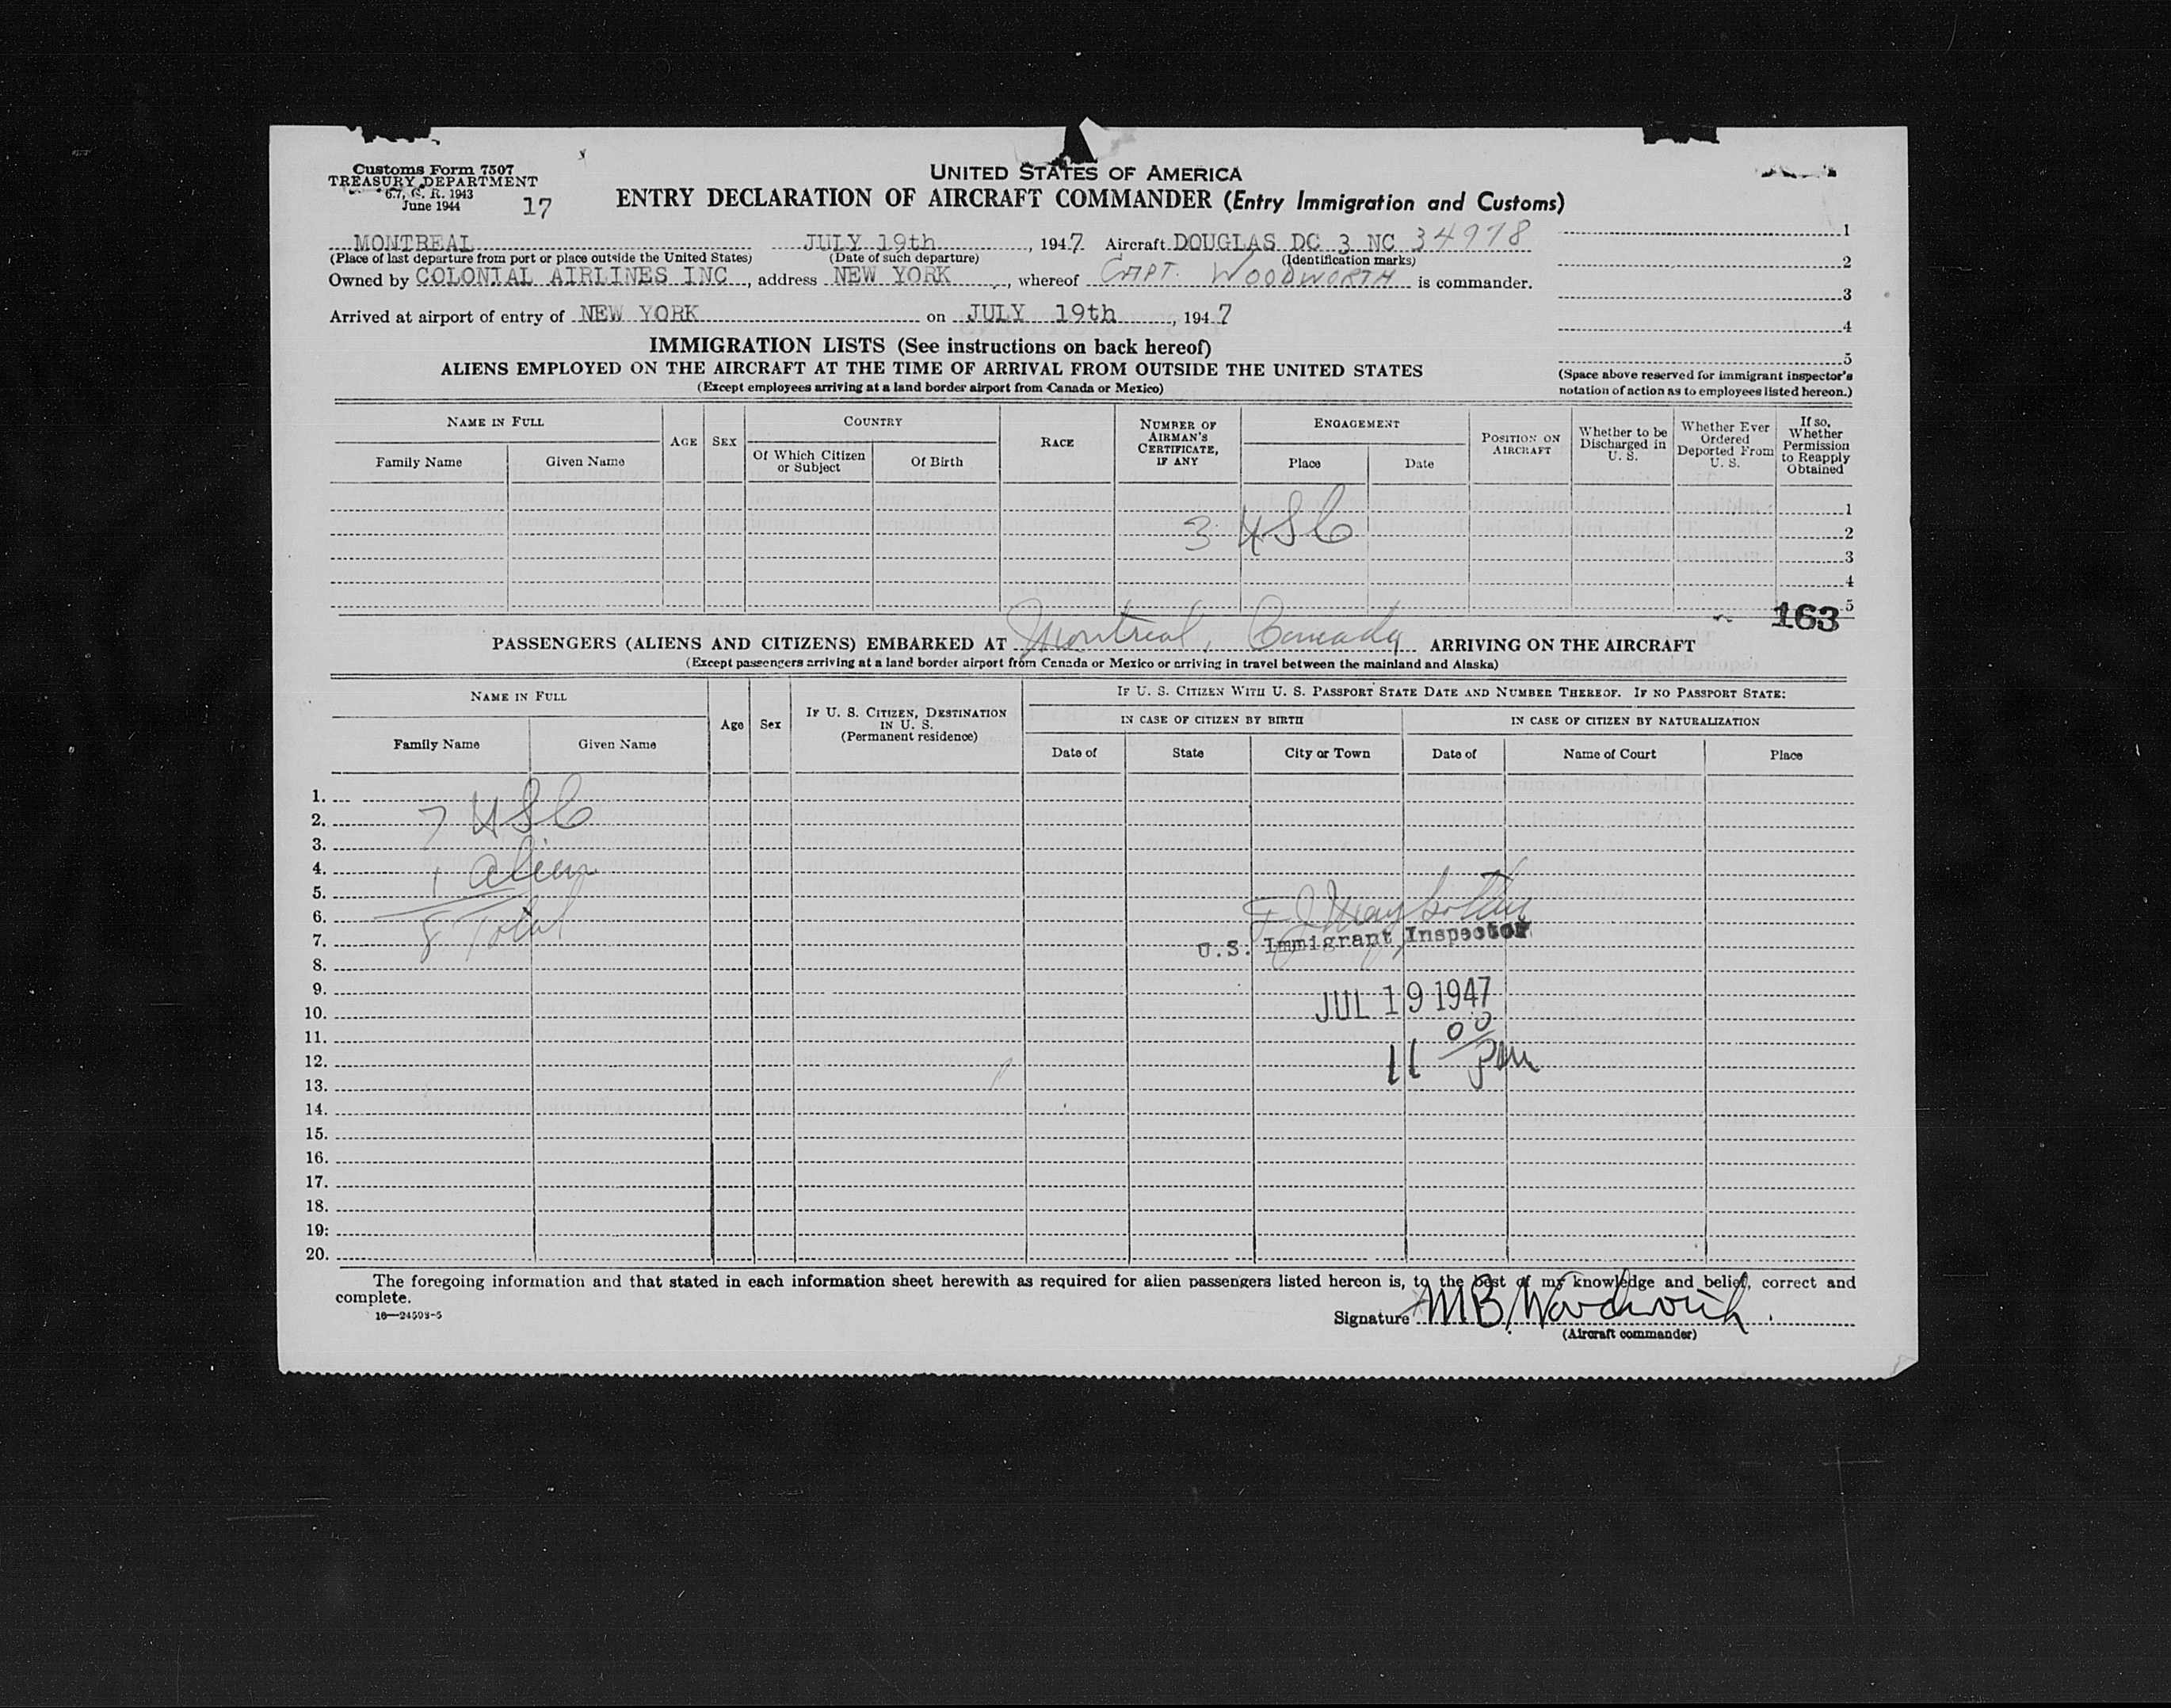 Customs Form 7507
TREASURY DEPARTMENT
6.7, C. R. 1943
June 1944
17
UNITED STATES OF AMERICA
ENTRY DECLARATION OF AIRCRAFT COMMANDER (Entry Immigration and Customs)
MONTREAL JULY 19th, 1947 Aircraft DOUGLAS DC 3 NC 34978 1
(Place of last departure from port or place outside the United States) (Date of such departure) (Identification marks) 2
Owned by COLONIAL AIRLINES INC, address NEW YORK, whereof CAPT. WOODWORTH is commander. 3
Arrived at airport of entry of NEW YORK on JULY 19th, 1947 4
IMMIGRATION LISTS (See instructions on back hereof) 5
ALIENS EMPLOYED ON THE AIRCRAFT AT THE TIME OF ARRIVAL FROM OUTSIDE THE UNITED STATES
(Except employees arriving at a land border airport from Canada or Mexico)
(Space above reserved for immigrant inspector's
notation of action as to employees listed hereon.)
NAME IN FULL
Family Name Given Name
AGE SEX
COUNTRY
Of Which Citizen or Subject Of Birth
RACE
NUMBER OF AIRMAN'S CERTIFICATE, IF ANY
ENGAGEMENT
Place Date
POSITION ON AIRCRAFT
Whether to be Discharged in U. S.
Whether Ever Ordered Deported From U. S.
If so, Whether Permission to Reapply Obtained
1
3 USC 2
3
4
5
163
PASSENGERS (ALIENS AND CITIZENS) EMBARKED AT Montreal, Canada ARRIVING ON THE AIRCRAFT
(Except passengers arriving at a land border airport from Canada or Mexico or arriving in travel between the mainland and Alaska)
NAME IN FULL
Family Name Given Name
Age Sex
IF U. S. CITIZEN, DESTINATION IN U. S.
(Permanent residence)
IF U. S. CITIZEN WITH U. S. PASSPORT STATE DATE AND NUMBER THEREOF. IF NO PASSPORT STATE:
IN CASE OF CITIZEN BY BIRTH IN CASE OF CITIZEN BY NATURALIZATION
Date of State City or Town Date of Name of Court Place
1.
2. 7 USC
3.
4. 1 alien
5.
6. 8 Total
7. U.S. Immigrant Inspector
8.
9.
10. JUL 19 1947
11.
12. 11 00 pm
13.
14.
15.
16.
17.
18.
19:
20.
The foregoing information and that stated in each information sheet herewith as required for alien passengers listed hereon is, to the best of my knowledge and belief, correct and
complete.
16—24593-5
Signature M B. Woodworth
(Aircraft commander)